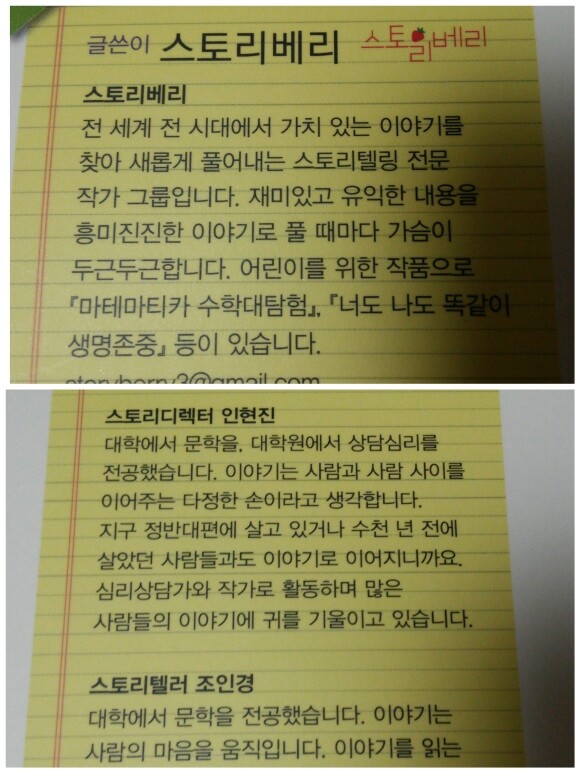 글쓴이 스토리베리 스토리베리
스토리베리
전 세계 전 시대에서 가치 있는 이야기를
찾아 새롭게 풀어내는 스토리텔링 전문
작가 그룹입니다. 재미있고 유익한 내용을
흥미진진한 이야기로 풀 때마다 가슴이
두근두근합니다. 어린이를 위한 작품으로
『마테마티카 수학대탐험』, 『너도 나도 똑같이
생명존중』 등이 있습니다.
storyberry3@gmail.com
스토리디렉터 인현진
대학에서 문학을, 대학원에서 상담심리를
전공했습니다. 이야기는 사람과 사람 사이를
이어주는 다정한 손이라고 생각합니다.
지구 정반대편에 살고 있거나 수천 년 전에
살았던 사람들과도 이야기로 이어지니까요.
심리상담가와 작가로 활동하며 많은
사람들의 이야기에 귀를 기울이고 있습니다.
스토리텔러 조인경
대학에서 문학을 전공했습니다. 이야기는
사람의 마음을 움직입니다. 이야기를 읽는